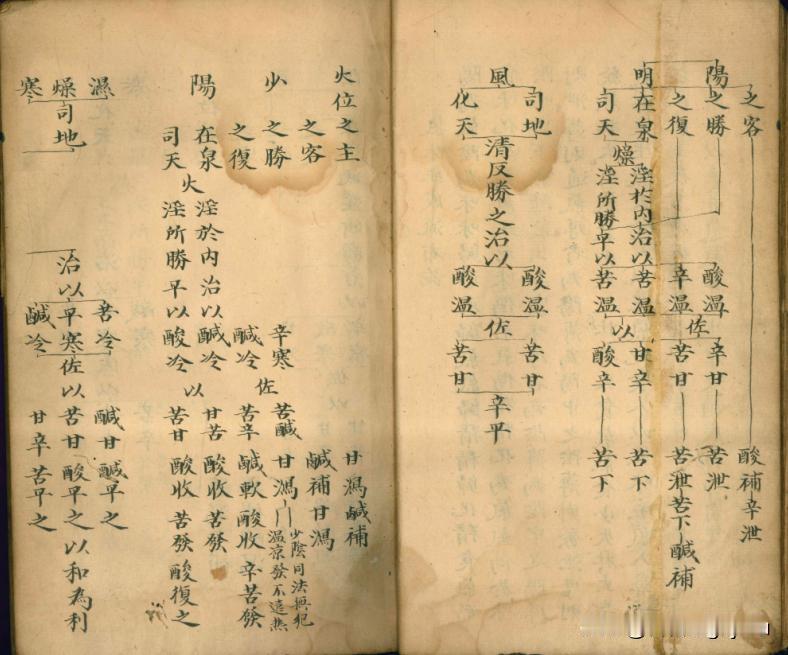 之客 酸補辛泄
陽之勝 酸温 辛甘 苦泄
之復 辛温 佐 苦甘 苦泄苦下鹹補
明在泉 燥 淫於内治以苦温 以 甘辛 苦下
司天 淫所勝平以苦温 酸辛 苦下
司地 酸温 苦甘
風 清反勝之治以 佐 辛平
化天 酸温 苦甘
火位之主 甘瀉鹹補
之客 鹹補甘瀉
少之勝 辛寒 佐 苦鹹 甘瀉 少陰同法無犯温凉發不遠熱
之復 鹹冷 苦辛 鹹軟 酸收 辛苦發
陽在泉 火 淫於内治以鹹冷 以 甘苦 酸收 苦發
司天 淫所勝平以酸冷 苦甘 酸收 苦發 酸復之
濕 苦冷 鹹甘鹹平之
燥司地 治以平寒佐以苦甘酸平之以和為利
寒 鹹冷 甘辛苦平之